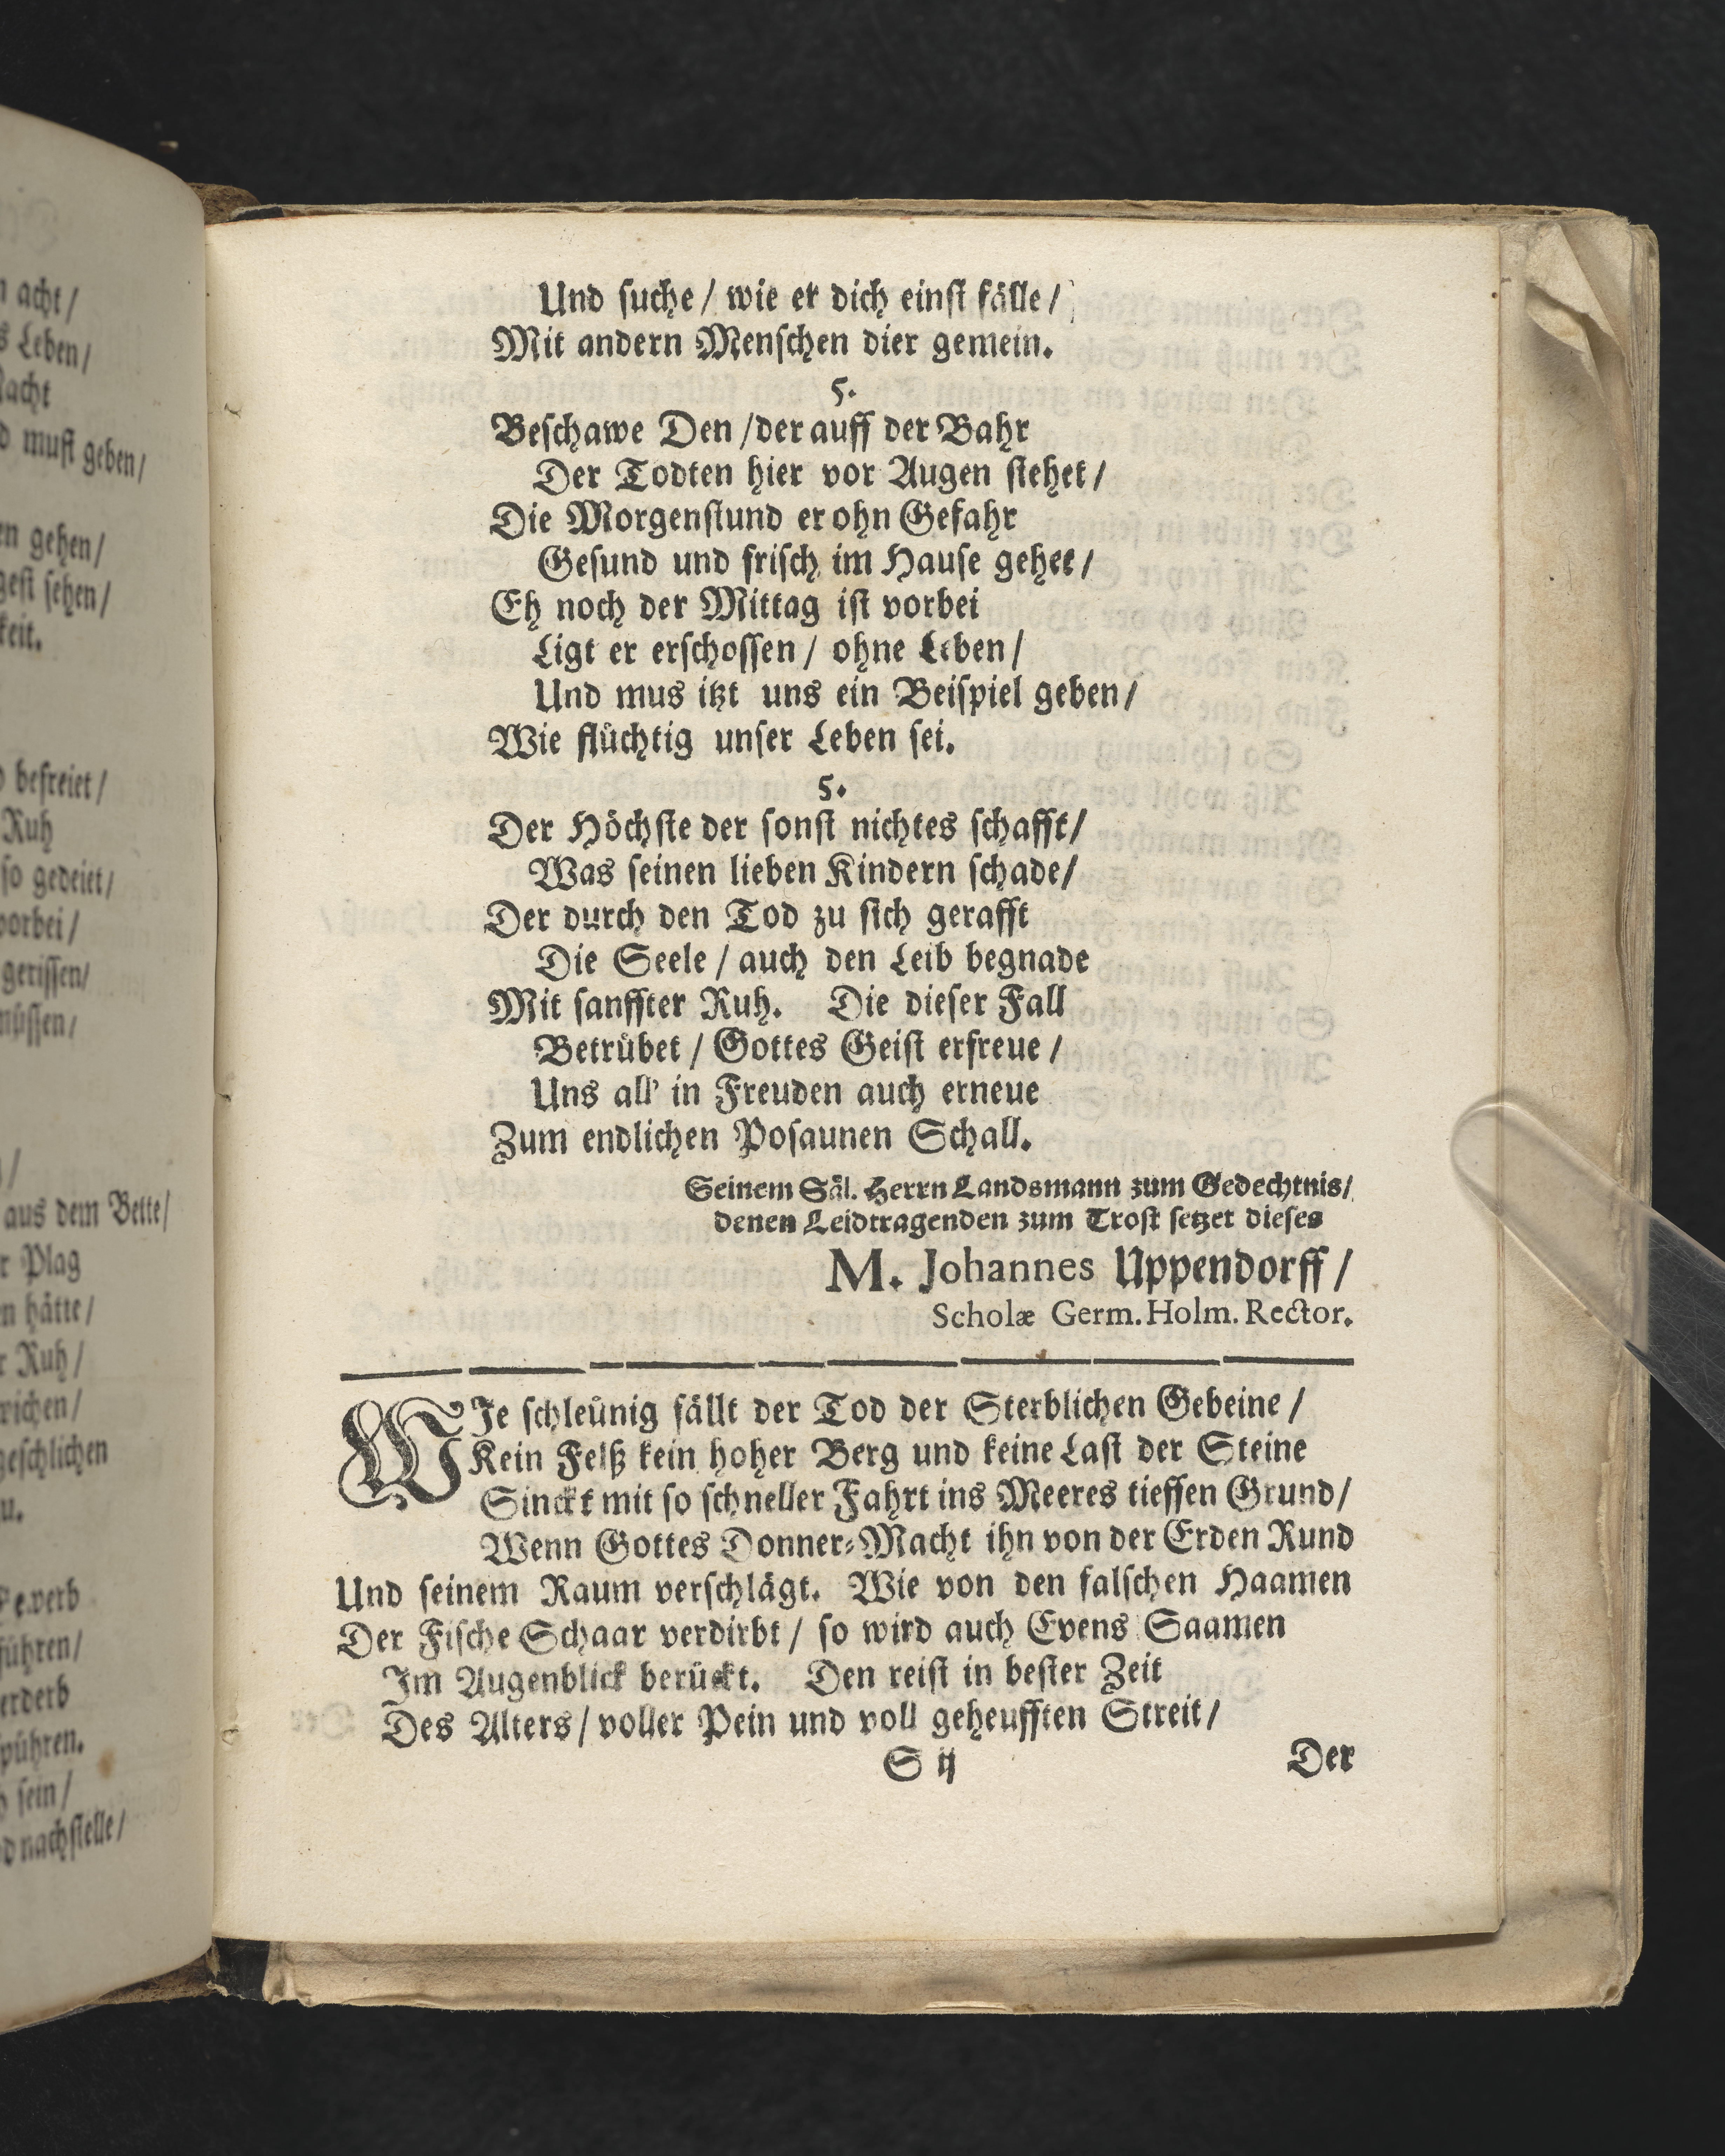 n acht/
s Leben/
Nacht
d must geben/
en gehen/
gest sehen/
keit.
befreiet/
Ruh
so gedeiet/
vorbei/
gerissen/
müssen/
aus dem Bette/
r Plag
n hätte/
r Ruh/
wichen/
geschlichen
u.
führen/
erderb
spühren.
sein/
nachstelle/
Und suche/ wie er dich einst fälle/
Mit andern Menschen dier gemein.
5.
Beschawe Den/der auff der Bahr
Der Todten hier vor Augen stehet/
Die Morgenstund er ohn Gefahr
Gesund und frisch im Hause gehet/
Eh noch der Mittag ist vorbei
Ligt er erschossen/ ohne Leben/
Und mus itzt uns ein Beispiel geben/
Wie flüchtig unser Leben sei.
5.
Der Höchste der sonst nichtes schafft/
Was seinen lieben Kindern schade/
Der durch den Tod zu sich gerafft
Die Seele/ auch den Leib begnade
Mit sanffter Ruh. Die dieser Fall
Betrübet/ Gottes Geist erfreue/
Uns all' in Freuden auch erneue
Zum endlichen Posaunen Schall.
Seinem Säl. Herrn Landsmann zum Gedechtnis/
denen Leidtragenden zum Trost setzet dieses
M. Johannes Uppendorff/
Scholæ Germ. Holm. Rector.
WIe schleünig fällt der Tod der Sterblichen Gebeine/
Kein Felß kein hoher Berg und keine Last der Steine
Sinckt mit so schneller Fahrt ins Meeres tieffen Grund/
Wenn Gottes Donner-Macht ihn von der Erden Rund
Und seinem Raum verschlägt. Wie von den falschen Haamen
Der Fische Schaar verdirbt/ so wird auch Evens Saamen
Im Augenblick berückt. Den reist in bester Zeit
Des Alters/ voller Pein und voll geheufften Streit/
S ij
Der